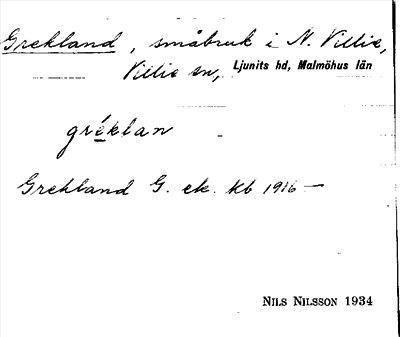 Grekland, småbruk i N. Villie,
Villie sn, Ljunits hd, Malmöhus län
gréklan
Grekland G. ek. Kb 1916 —
NILS NILSSON 1934